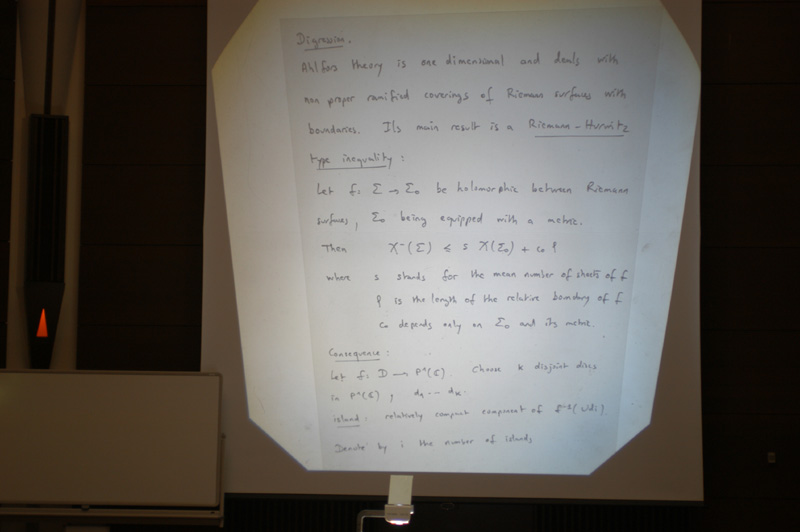 Digression.
Ahlfors theory is one dimensional and deals with
non proper ramified coverings of Riemann surfaces with
boundaries. Its main result is a Riemann-Hurwitz
type inequality :
Let f: Σ → Σ₀ be holomorphic between Riemann
surfaces, Σ₀ being equipped with a metric.
Then χ⁻(Σ) ≤ s χ(Σ₀) + c₀ l
where s stands for the mean number of sheets of f
l is the length of the relative boundary of f
c₀ depends only on Σ₀ and its metric.
Consequence :
Let f: D → P¹(C). Choose k disjoint discs
in P¹(C), d₁ ... dₖ.
island : relatively compact component of f⁻¹(∪dᵢ).
Denote by i the number of islands